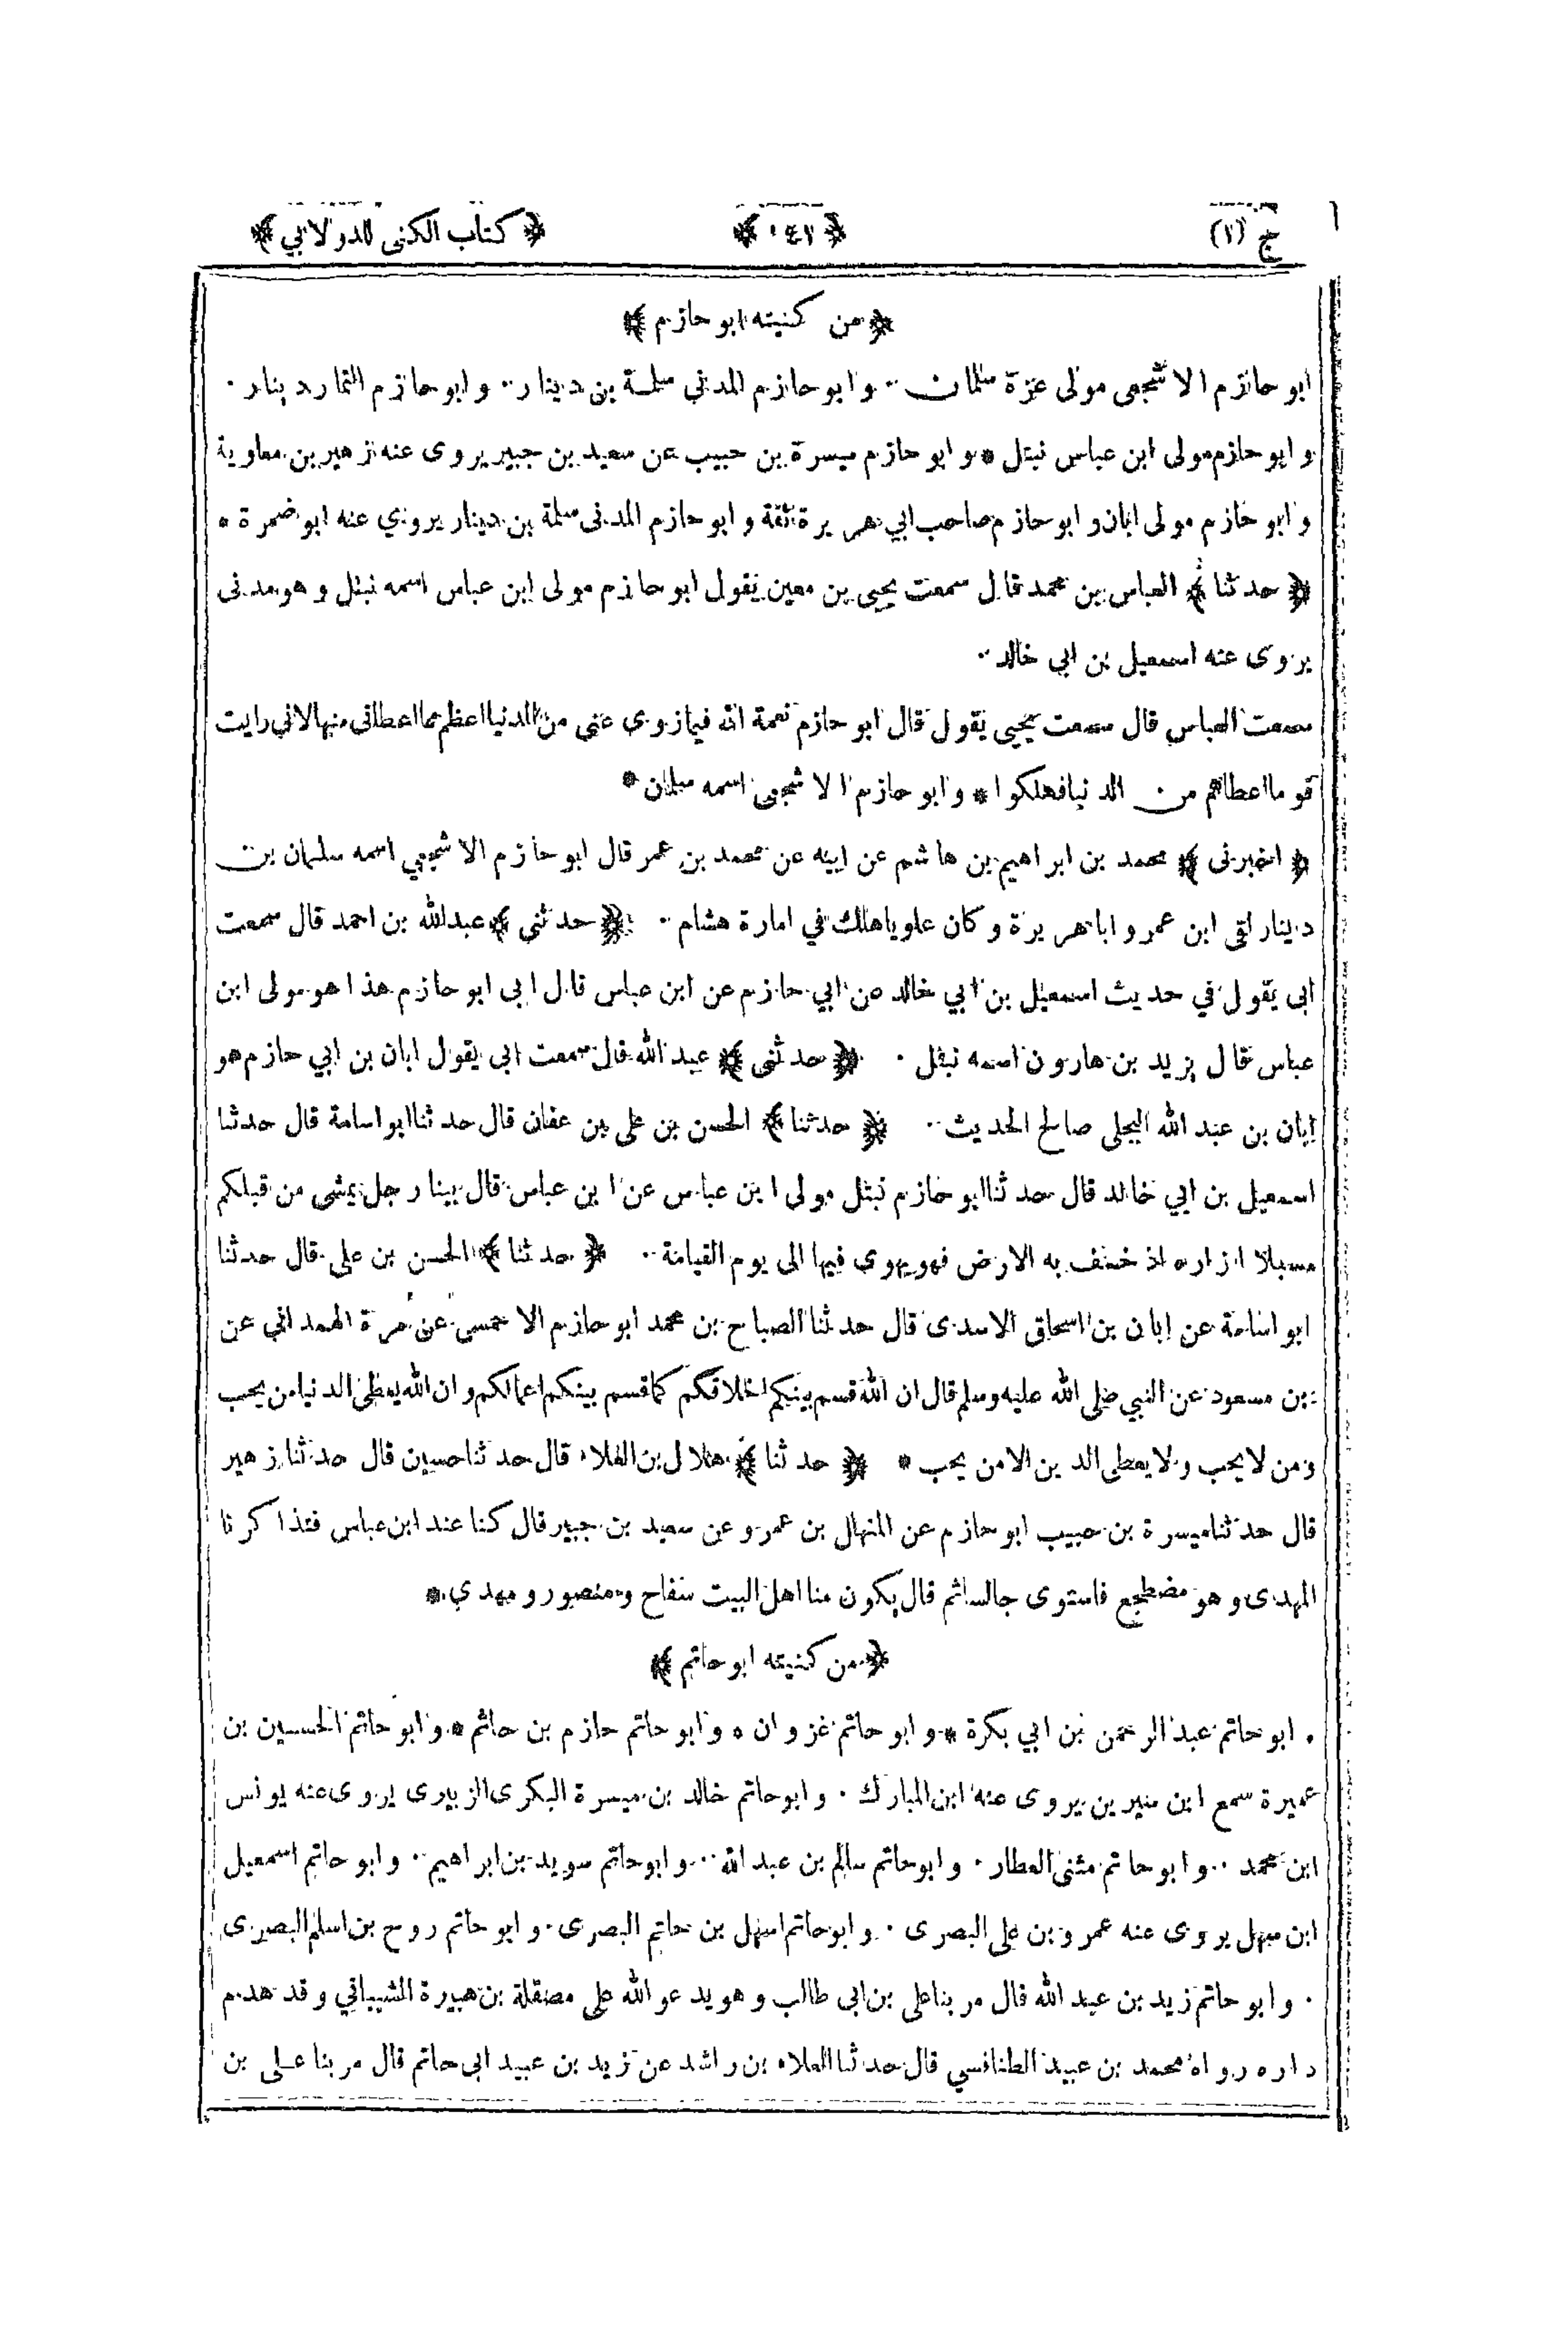 ج (١) ﴿١٤١﴾ ﴿كتاب الكنى للدولابي﴾
﴿من كنيته ابو حازم﴾
ابو حازم الاشجعى مولى عزة سلمان ٠٠ وابو حازم المدني سلمة بن دينار ٠٠ وابو حازم التمار دينار ٠
وابو حازم مولى ابن عباس نبتل * وابو حازم ميسرة بن حبيب عن سعيد بن جبير يروى عنه زهير بن معاوية
وابو حازم مولى ابان وابو حازم صاحب ابي هريرة ثقة وابو حازم المدنى سلمة بن دينار يروي عنه ابو ضمرة *
﴿حدثنا﴾ العباس بن محمد قال سمعت يحيى بن معين يقول ابو حازم مولى ابن عباس اسمه نبتل وهو مدنى
يروى عنه اسمعيل بن ابي خالد ٠٠
سمعت العباس قال سمعت يحيى يقول قال ابو حازم نعمة الله فيما زوى عنى من الدنيا اعظم مما اعطانى منها لاني رايت
قوما اعطاهم من الدنيا فهلكوا * وابو حازم الاشجعى اسمه سلمان *
﴿اخبرنى﴾ محمد بن ابراهيم بن هاشم عن ابيه عن محمد بن عمر قال ابو حازم الاشجعي اسمه سلمان بن
دينار لقى ابن عمر وابا هريرة وكان علويا هلك في امارة هشام ٠٠ ﴿حدثنى﴾ عبدالله بن احمد قال سمعت
ابى يقول في حديث اسمعيل بن ابي خالد عن ابي حازم عن ابن عباس قال ابى ابو حازم هذا هو مولى ابن
عباس قال يزيد بن هارون اسمه نبتل ٠ ﴿حدثنى﴾ عبد الله قال سمعت ابى يقول ابان بن ابي حازم هو
ابان بن عبد الله البجلى صالح الحديث ٠٠ ﴿حدثنا﴾ الحسن بن على بن عفان قال حدثنا ابو اسامة قال حدثنا
اسمعيل بن ابي خالد قال حدثنا ابو حازم نبتل مولى ابن عباس عن ابن عباس قال بينا رجل يمشى من قبلكم
مسبلا ازاره اذ خسف به الارض فهو يهوى فيها الى يوم القيامة ٠٠ ﴿حدثنا﴾ الحسن بن على قال حدثنا
ابو اسامة عن ابان بن اسحاق الاسدى قال حدثنا الصباح بن محمد ابو حازم الاحمسى عن مرة الهمداني عن
بن مسعود عن النبي صلى الله عليه وسلم قال ان الله قسم بينكم اخلاقكم كما قسم بينكم اعمالكم وان الله يعطى الدنيا من يحب
ومن لا يحب ولا يعطى الدين الا من يحب * ﴿حدثنا﴾ هلال بن العلاء قال حدثنا حسين قال حدثنا زهير
قال حدثنا ميسرة بن حبيب ابو حازم عن المنهال بن عمرو عن سعيد بن جبير قال كنا عند ابن عباس فتذاكرنا
المهدى وهو مضطجع فاستوى جالسا ثم قال يكون منا اهل البيت سفاح ومنصور ومهدي *
﴿من كنيته ابو حاتم﴾
٠ ابو حاتم عبد الرحمن بن ابي بكرة * وابو حاتم غزوان * وابو حاتم حازم بن حاتم * وابو حاتم الحسين بن
عميرة سمع ابن منير بن يروى عنه ابن المبارك ٠ وابو حاتم خالد بن ميسرة البكرى الزبيرى يروى عنه يونس
ابن محمد ٠٠ وابو حاتم مثنى العطار ٠ وابو حاتم سالم بن عبد الله ٠٠ وابو حاتم سويد بن ابراهيم ٠٠ وابو حاتم اسمعيل
ابن سهل يروى عنه عمرو بن على البصرى ٠ وابو حاتم اسهل بن حاتم البصرى ٠ وابو حاتم روح بن اسلم البصرى
٠ وابو حاتم زيد بن عبد الله قال مر بنا على بن ابى طالب وهو يدعو الله على مصقلة بن هبيرة الشيبانى وقد هدم
داره رواه محمد بن عبيد الطنافسي قال حدثنا العلاء بن راشد عن زيد بن عبيد ابى حاتم قال مر بنا على بن